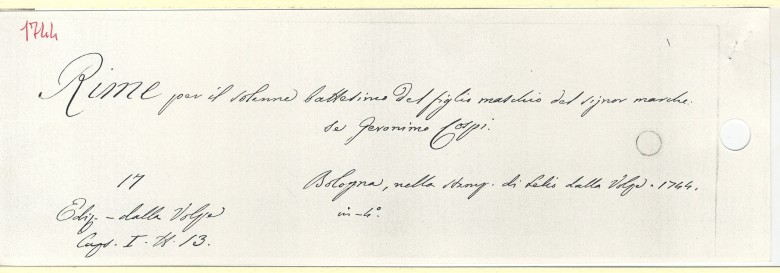 1744
Rime per il solenne battesimo del figlio maschio del signor marche-
se Geronimo Cospi.
17
Bologna, nella stamp. di Lelio dalla Volpe. 1744.
in-4°.
Ediz. - dalla Volpe
Caps. I. N. 13.